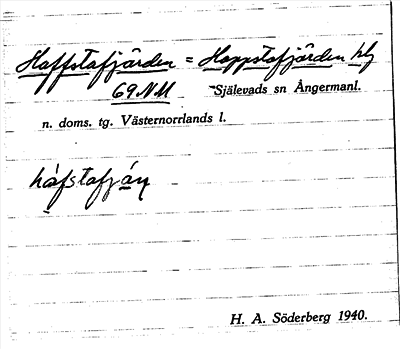 Haffstafjärden = Hoppstafjärden
69 NM Själevads sn Ångermanl.
n. doms. tg. Västernorrlands l.
håfstafjáṇ
H. A. Söderberg 1940.